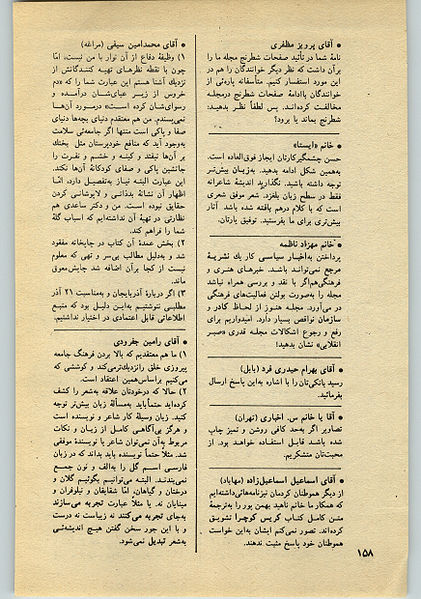 • آقای پرویز مظفری
نامهٔ شما در تأئید صفحات شطرنج مجله ما را
برآن داشت که نظر دیگر خوانندگان را هم در
این مورد استفسار کنیم. متأسفانه پاره‌ئی از
خوانندگان باادامهٔ صفحات شطرنج درمجله
مخالفت کرده‌اند. پس لطفاً نظر بدهید:
شطرنج بماند یا برود؟
• خانم «ایستا»
حسن چشمگیرکارتان ایجاز فوق‌العاده است.
به‌همین شکل ادامه بدهید. به‌زبان بیش‌تر
توجه داشته باشید. نگذارید اندیشهٔ شاعرانه
فقط در سطح زبان بلغزد. شعر موفق شعری
است که با کلام درهم بافته شده باشد. آثار
بیش‌تری برای ما بفرستید. توفیق یارتان.
• خانم مهرداد ناظمه
پرداختن به‌اخبار سیاسی کار یک نشریهٔ
مرجع نمی‌تواند باشد. خبرهای هنری و
فرهنگی‌هم‌اگر با نقد و بررسی همراه نباشد
مجله را به‌صورت بولتن فعالیت‌های فرهنگی
در می‌آورد. مجله هنوز از لحاظ کادر و
سازمان نواقص بسیار دارد. امیدواریم برای
رفع و رجوع اشکالات مجله قدری «صبر
انقلابی» نشان بدهید!
• آقای بهرام حیدری فرد (بابل)
رسید بانکی‌تان را با اشاره به‌این پاسخ ارسال
بفرمائید.
• آقا یا خانم س. اخباری (تهران)
تصاویر اگر به‌حد کافی روشن و تمیز چاپ
شده باشد قابل استفاده خواهد بود. از
محبت‌تان متشکریم.
• آقای اسماعیل اسماعیل‌زاده (مهاباد)
از دیگر هموطنان کردمان نیزنامه‌هائی‌داشته‌ایم
که همکار ما خانم ناهید بهمن پور را به‌ترجمهٔ
متن کامل کتاب کریس کوچرا تشویق
کرده‌اند. تصور نمی‌کنم ایشان به‌این خواست
هموطنان خود پاسخ مثبت ندهند.
• آقای محمدامین سیفی (مراغه)
۱) وظیفهٔ دفاع از آن نوار با من نیست، امّا
چون با نقطه نظرهای تهیه کنندگانش از
نزدیک آشنا هستم این عبارت شما را که «دم
خروس از زیر عبای‌شان درآمده و
رسوای‌شان کرده است» درمورد آن‌ها
نمی‌پسندم. من هم معتقدم دنیای بچه‌ها دنیای
صفا و پاکی است منتها اگر جامعه‌ئی سلامت
به‌وجود آید که منافع خودپرستان مثل بختک
بر آن‌ها نیفتد و کینه و خشم و نفرت را
جانشین پاکی و صفای کودکانهٔ آن‌ها نکند.
این عبارت البته نیاز به‌تفصیل دارد، امّا
اظهار آن نشانهٔ بددانی و لاپوشانی کردن
حقایق نبوده است. من و دکتر ساعدی هم
نظارتی در تهیهٔ آن نداشته‌ایم که اسباب گلهٔ
شما را فراهم کند.
۲) بخش عمدهٔ آن کتاب در چاپخانه مفقود
شد و به‌دلیل مطالب بی‌سر و تهی که معلوم
نیست از کجا برآن اضافه شد چاپش‌معوق
ماند.
۳) اگر دربارهٔ آذربایجان و به‌مناسبت ۲۱ آذر
مطلبی ننوشتیم به‌این دلیل بود که منبع
اطلاعاتی قابل اعتمادی در اختیار نداشتیم.
• آقای رامین جفرودی
۱) ما هم معتقدیم که بالا بردن فرهنگ جامعه
پیروزی خلق رانزدیک‌ترمی‌کند و کوششی که
می‌کنیم براساس‌همین اعتقاد است.
۲) حالا که درخودتان علاقه به‌شعر را کشف
کرده‌اید حتماًباید به‌مسألهٔ زبان بیش‌تر توجه
کنید. زبان وسیلهٔ کار شاعر و نویسنده است
و هرگز بی‌آگاهی کامل از زبان و نکات
مربوط به‌آن نمی‌توان شاعر یا نویسندهٔ موفقی
شد. مثلاً حتماً نویسنده باید بداند که در زبان
فارسی اسم گل را به‌الف و نون جمع
نمی‌بندند. البته می‌توانیم بگوئیم گلان و
درختان و گیاهان، امّا شقایقان و نیلوفران و
میناپان نه. یا مثلاً عبارت تجربه می‌سازند
به‌جای تجربه می‌کنند نه زیباست نه درست
و با این جور سخن گفتن هیچ اندیشه‌ئی
به‌شعر تبدیل نمی‌شود.
۱۵۸